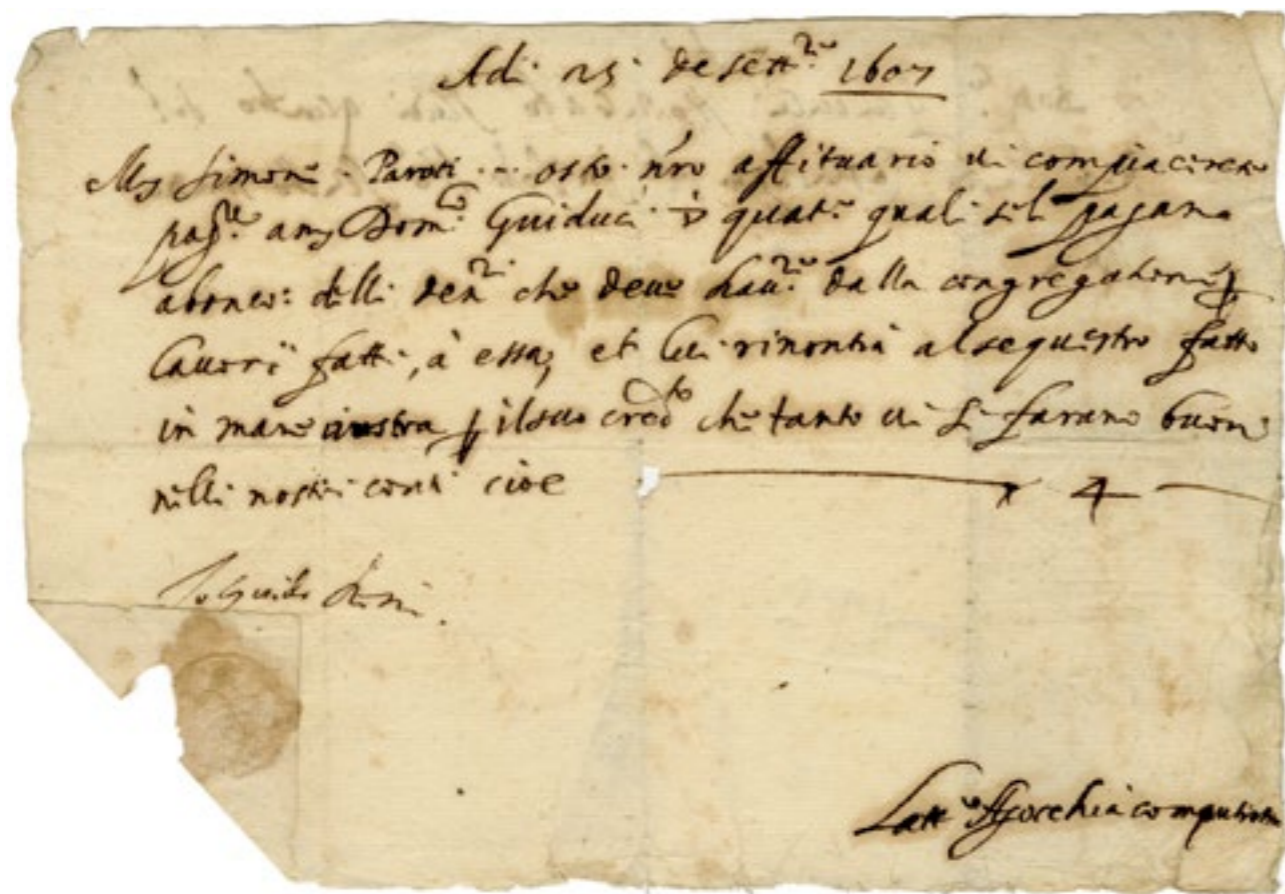 Adi 25 de sett.re 1607
Ms Simone Paroti osto nro affituario vi compiacerete
pag.re a ms Dom.co Guiduci quatr. quali se li pagano
a bon co: delli den.ri che deve hav.re dalla congregatione
lavori fatti, à essa, et lui rinontia al sequestro fatto
in mano vostra il suo cred.to che tanto vi si farano buoni
nelli nostri conti cioe 4
Io Guido
Latt.o computista